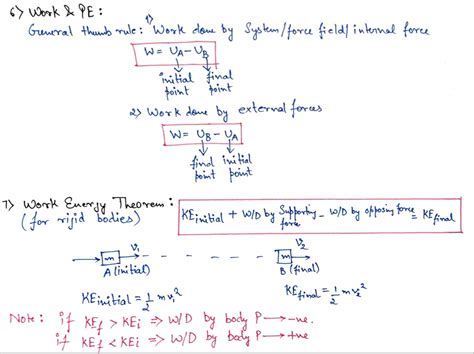 6) Work & PE :
General thumb rule: 1) Work done by System/force field/internal force
W = U_A - U_B
initial point   final point
2) Work done by external forces
W = U_B - U_A
final point   initial point
7) Work Energy Theorem :
(for rijid bodies)
KE initial + W/D by Supporting force - W/D by opposing force = KE final
m   v₁   m   v₂
A (initial)   B (final)
KE initial = 1/2 m v₁²   KE final = 1/2 m v₂²
Note : if KE_f > KE_i => W/D by body P → -ve.
if KE_f < KE_i => W/D by body P → +ve